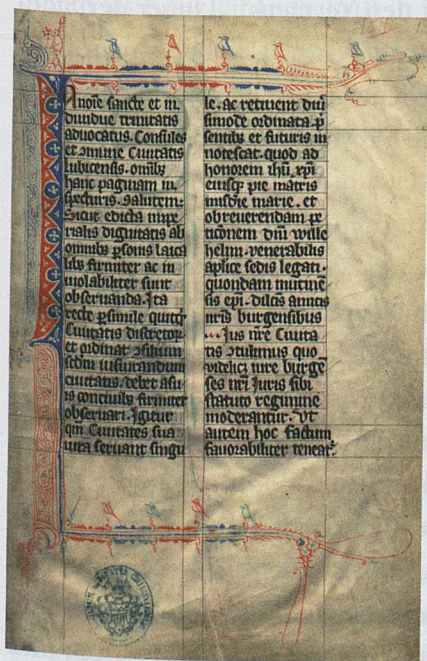 In noīe sancte et in
diuidue trinitatis
aduocatus. Consules
et ɔmune Ciuitatis
lubicensis. omībꝫ
hanc paginam in
specturis. Salutem.
Sicut edicta impe
rialis dignitatis ab
omnibꝫ ꝑsonis laica
libꝫ firmiter ac in
uiolabiliter sunt
obseruanda. Ita
recte ꝑ simile
Ciuitatis
et ordinat
iusiurandum
ciuitatis. debet a
is firmiter
obseruari. Igitur
Ciuitates sua
iura seruant singu
le. ac retinent
simode ordinata. p̄
sentibꝫ et futuris in
notescat. quod ad
honorem ihū xp̄i
eiusqꝫ pie matris
marie. et
ob reuerendam pe
ticōnem dn̄i wille
helmi. venerabilis
aplice sedis legati.
quondam mutine
sis ep̄i. dilc̄is amicis
nr̄is burgensibus
... Jus nr̄e Ciuita
tis ɔtulimus quo
videlicꝫ iure burgē
ses nr̄i Juris sibi
statuto regimine
moderantur. Vt
autem hoc factum
fauorabiliter teneat᷑.